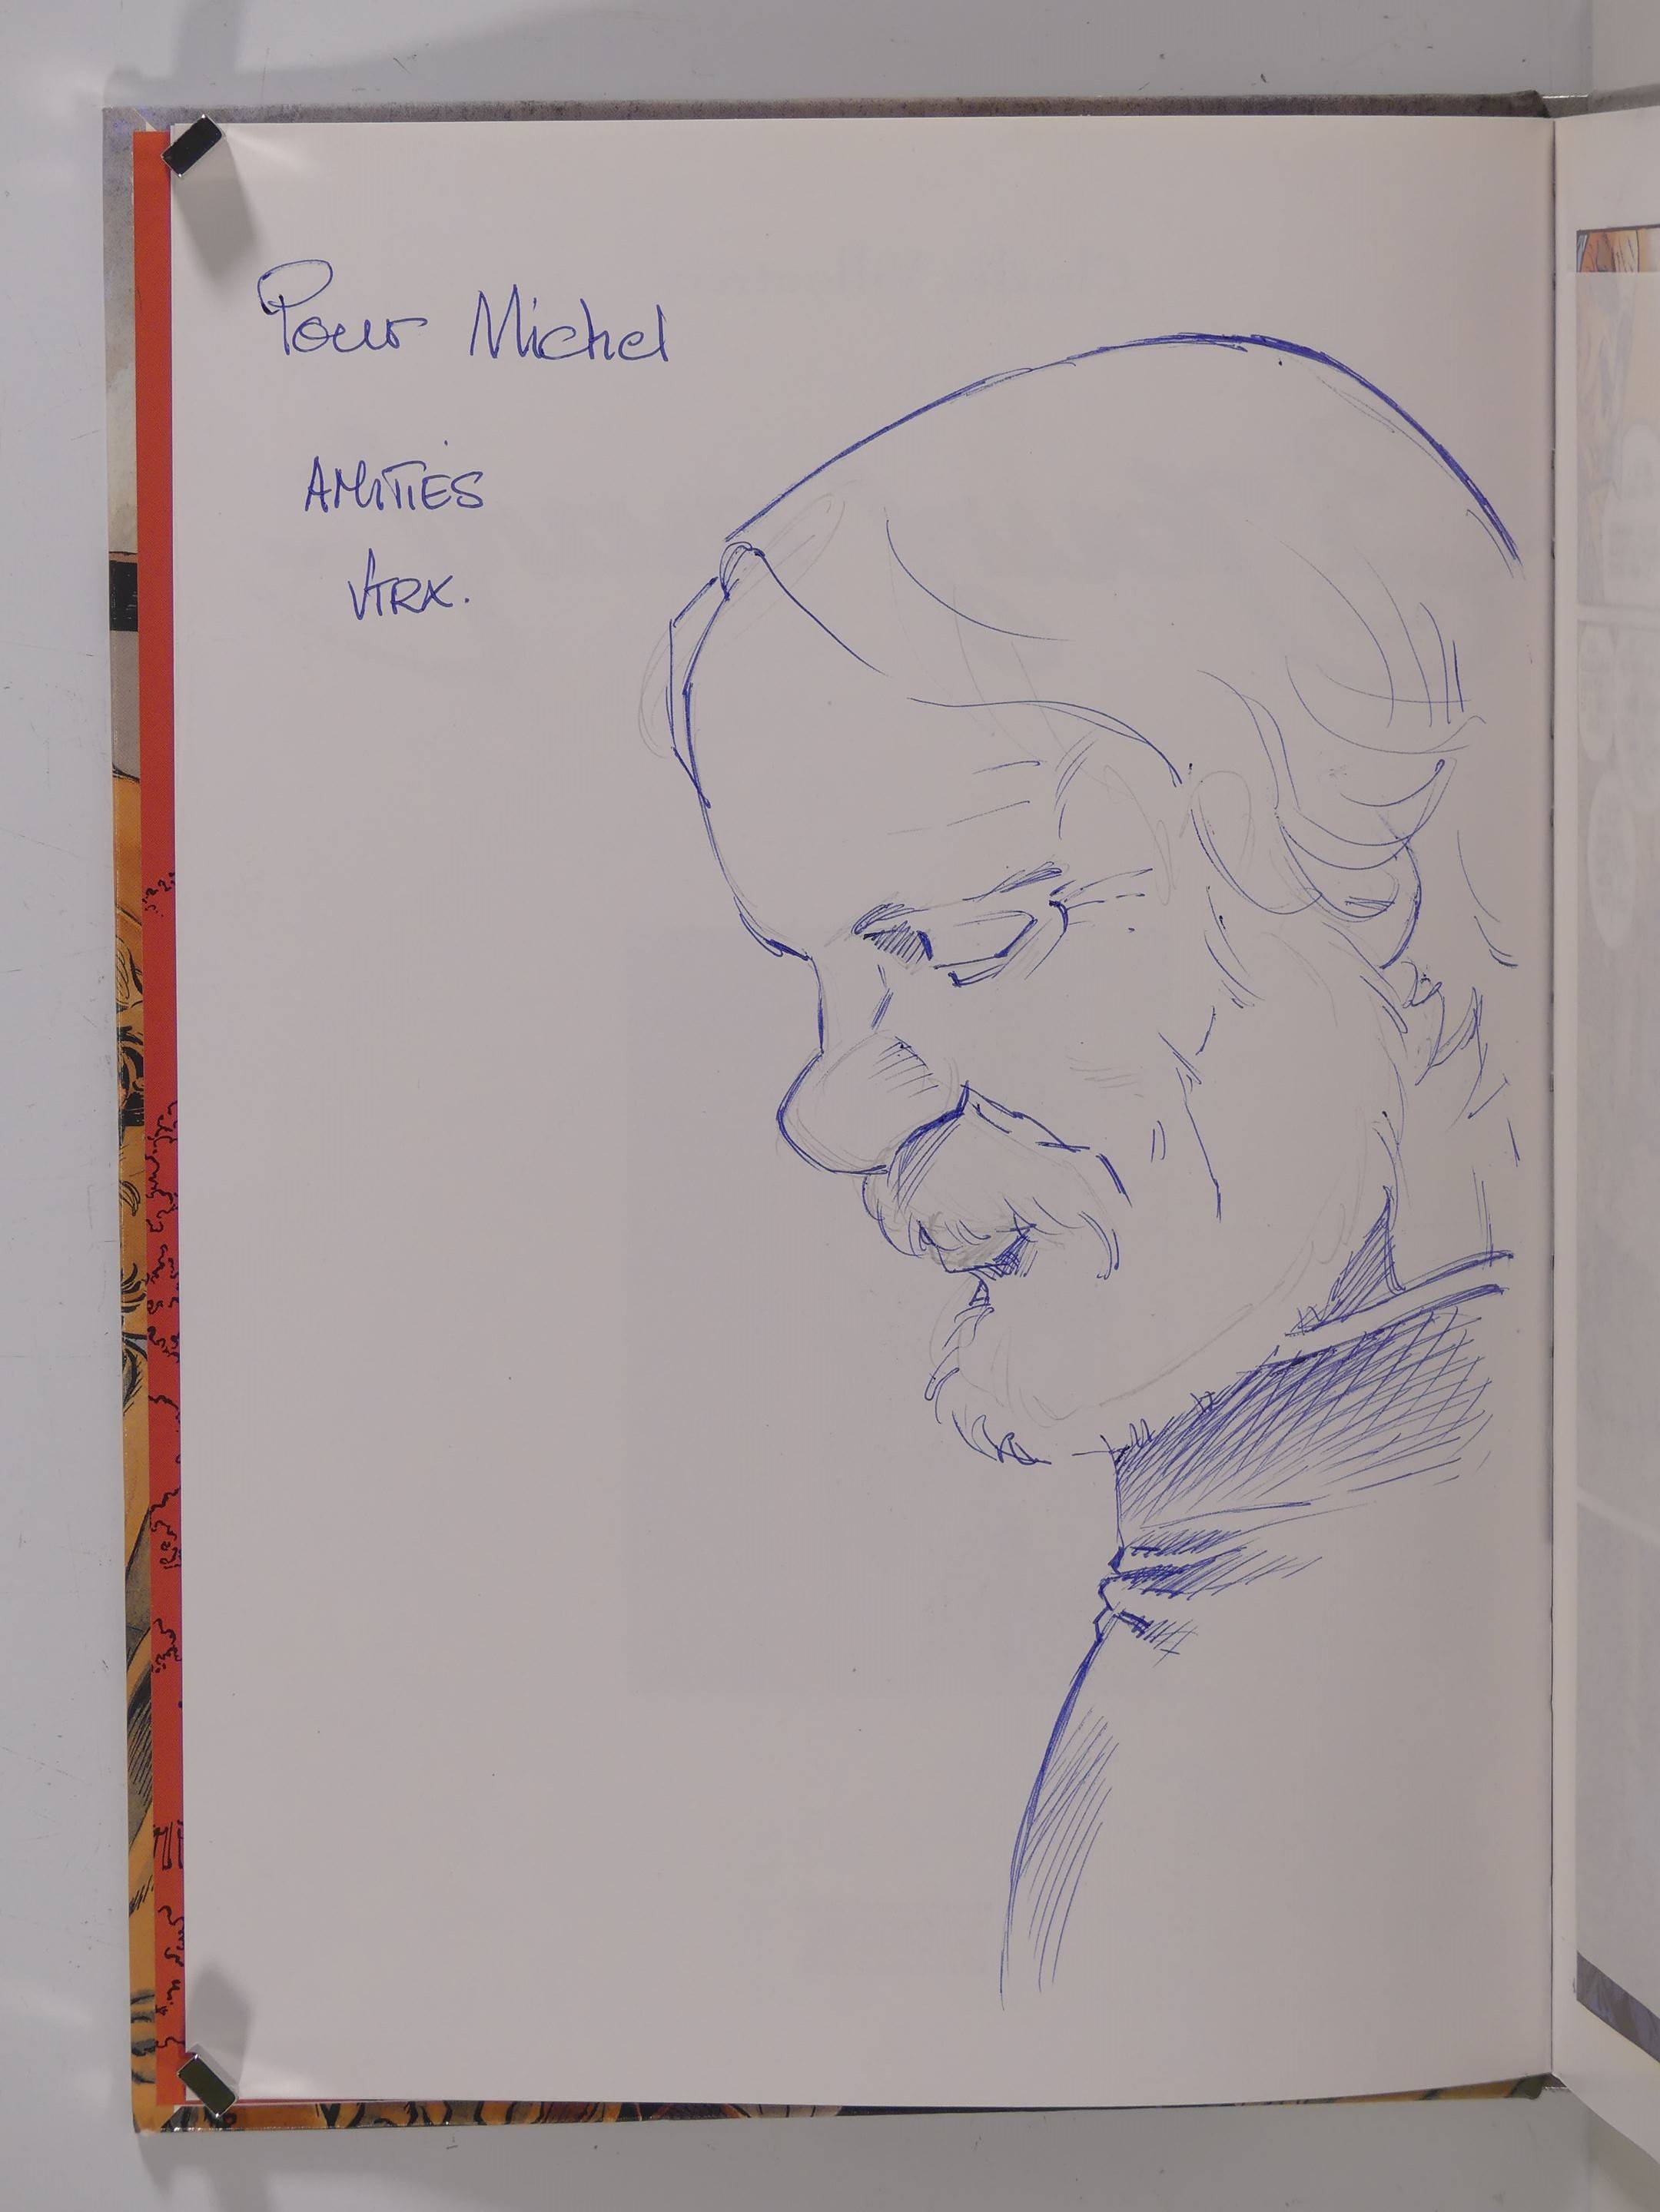 Pour Michel
AMITIÉS
VTRX.